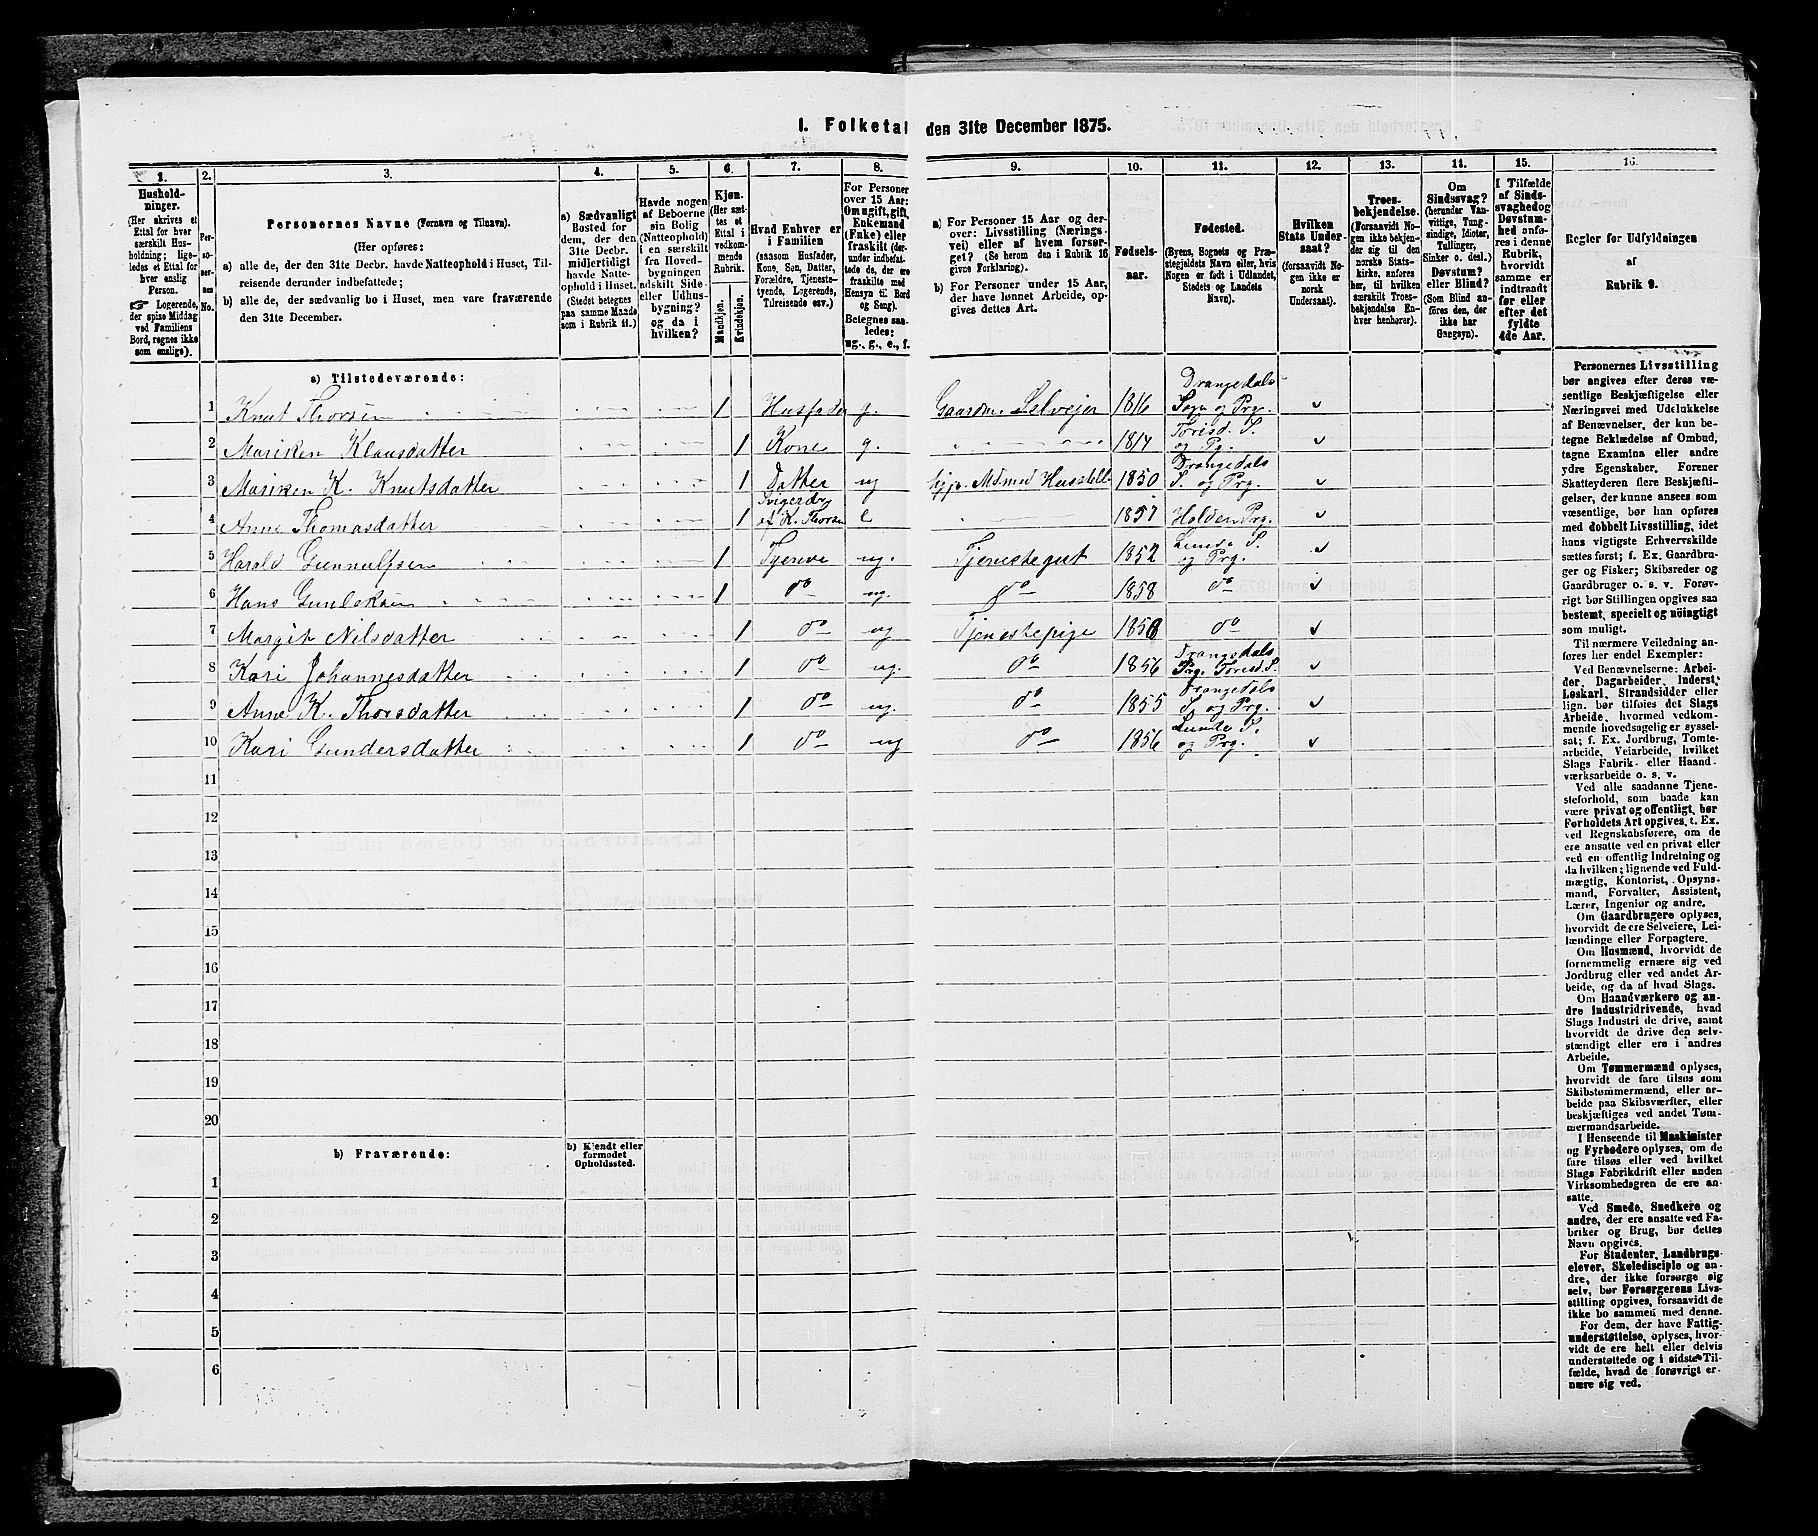 1. Folketal den 31te December 1875.
1.
Hushold-
ninger.
(Her skrives et
Ettal for hver
særskilt Hus-
holdning; lige-
ledes et Ettal for
hver enslig
Person.
☞ Logerende,
der spise Middag
ved Familiens
Bord, regnes ikke
som enslige).
2.
Per-
so-
ner-
nes
No.
3.
Personernes Navne (Fornavn og Tilnavn).
(Her opføres:
a) alle de, der den 31te Decbr. havde Natteophold i Huset, Til-
reisende derunder indbefattede;
b) alle de, der sædvanlig bo i Huset, men vare fraværende
den 31te December.
4.
a) Sædvanligt
Bosted for
dem, der den
31te Decbr.
midlertidigt
havde Natte-
ophold i Huset.
(Stedet betegnes
paa samme Maade
som i Rubrik 11.)
5.
Havde nogen
af Beboerne
sin Bolig
(Natteophold)
i en særskilt
fra Hoved-
bygningen
adskilt Side-
eller Udhus-
bygning?
og da i
hvilken?
6.
Kjøn.
(Her sæt-
tes et
Ettal i
vedkom-
mende
Rubrik.
Mandkjøn.
Kvindekjøn.
7.
Hvad Enhver er
i Familien
(saasom Husfader,
Kone, Søn, Datter,
Forældre, Tjeneste-
tyende, Logerende,
Tilreisende osv.)
8.
For Personer
over 15 Aar:
Om ugift, gift,
Enkemand
(Enke) eller
fraskilt (der-
under indbefat-
tede de, der ere
fraskilte med
Hensyn til Bord
og Seng).
Betegnes saa-
ledes:
ug., g., e., f.
9.
a) For Personer 15 Aar og der-
over: Livsstilling (Nærings-
vei) eller af hvem forsør-
get? (Se herom den i Rubrik 16
givne Forklaring).
b) For Personer under 15 Aar,
der have lønnet Arbeide, op-
gives dettes Art.
10.
Fødsels-
aar.
11.
Fødested.
(Byens, Sognets og Præ-
stegjeldets Navn eller, hvis
Nogen er født i Udlandet,
Stedets og Landets
Navn).
12.
Hvilken
Stats Under-
saat?
(forsaavidt No-
gen ikke er
norsk
Undersaat).
13.
Troes-
bekjendelse.
(Forsaavidt No-
gen ikke bekjen-
der sig til den
norske Stats-
kirke, anføres
her, til hvilken
særskilt Troes-
bekjendelse En-
hver henhører).
14.
Om
Sindssvag?
(herunder Van-
vittige, Tung-
sindige, Idioter,
Tullinger,
Sinker o. desl.)
Døvstum?
eller Blind?
(Som Blind an-
føres den, der
ikke har
Gangsyn).
15.
I Tilfælde
af Sinds-
svaghed og
Døvstum-
hed anfø-
res i denne
Rubrik,
hvorvidt
samme er
indtraadt
før eller
efter det
fyldte
4de Aar.
16.
Regler for Udfyldningen
af
Rubrik 9.
a) Tilstedeværende:
1 Knut Thorsen 1 Husfader g. Gaardm. Selveier 1816 Drangedals Sogn og Prg. v
2 Mariken Klausdatter 1 Kone g. 1817 Tørisd. S. og Pg. v
3 Mariken K. Knutsdatter 1 Datter ug Hjp. M med Husstell 1850 Drangedals S. og Prg. v
4 Anne Thomasdatter 1 Svigerdtr af K. Thorsen e 1857 Holden Prg. v
5 Harald Gunnulfsen 1 Tjener ug. Tjenestegut 1852 Lunde S. og Prg. v
6 Hans Gunleksen 1 do ug. do 1858 do v
7 Margit Nilsdatter 1 do ug Tjenestepige 1858 do v
8 Kari Johannesdatter 1 do ug. do 1856 Drangedals Prg. Tørisd. S. v
9 Anne K. Thorsdatter 1 do ug. do 1855 Drangedals S. og Prg. v
10 Kari Gundersdatter 1 do ug do 1856 Lunde S. og Prg. v
11
12
13
14
15
16
17
18
19
20
b) Fraværende:
b) Kjendt eller
formodet
Opholdssted.
1
2
3
4
5
6
Personernes Livsstilling
bør angives efter deres væ-
sentlige Beskjæftigelse eller
Næringsvei med Udelukkelse
af Benævnelser, der kun be-
tegne Beklædelse af Ombud,
tagne Examina eller andre
ydre Egenskaber. Forener
Skatteyderen flere Beskjæfti-
gelser, der kunne ansees som
væsentlige, bør han opføres
med dobbelt Livsstilling, idet
hans vigtigste Erhvervskilde
sættes først; f. Ex. Gaardbru-
ger og Fisker; Skibsreder og
Gaardbruger o. s. v. Forøv-
rigt bør Stillingen opgives saa
bestemt, specielt og nøiagtigt
som muligt.
Til nærmere Veiledning an-
føres her endel Exempler:
Ved Benævnelserne: Arbei-
der, Dagarbeider, Inderst,
Løskarl, Strandsidder eller
lign. bør tilføies det Slags
Arbeide, hvormed vedkom-
mende hovedsagelig er syssel-
sat; f. Ex. Jordbrug, Tomte-
arbeide, Veiarbeide, hvilket
Slags Fabrik- eller Haand-
værksarbeide o. s. v.
Ved alle saadanne Tjene-
steforhold, som baade kan
være privat og offentligt, bør
Forholdets Art opgives, t. Ex.
ved Regnskabsførere, om de
ere ansatte ved en privat eller
ved en offentlig Indretning og
da hvilken; lignende ved Fuld-
mægtig, Kontorist, Opsyns-
mand, Forvalter, Assistent,
Lærer, Ingeniør og andre.
Om Gaardbrugere oplyses,
hvorvidt de ere Selveiere, Lei-
lændinge eller Forpagtere.
Om Husmænd, hvorvidt de
fornemmelig ernære sig ved
Jordbrug eller ved andet Ar-
beide, og da af hvad Slags.
Om Haandværkere og an-
dre Industridrivende, hvad
Slags Industri de drive, samt
hvorvidt de drive den selv-
stændigt eller ere i andres
Arbeide.
Om Tømmermænd oplyses,
hvorvidt de fare tilsøs som
Skibstømmermænd, eller ar-
beide paa Skibsværfter, eller
beskjæftiges ved andet Tøm-
mermandsarbeide.
I Henseende til Maskinister
og Fyrbødere oplyses, om de
fare tilsøs eller ved hvilket
Slags Fabrikdrift eller anden
Virksomhedsgren de ere an-
satte.
Ved Smede, Snedkere og
andre, der ere ansatte ved Fa-
briker og Brug, bør dettes
Navn opgives.
For Studenter, Landbrugs-
elever, Skoledisciple og an-
dre, der ikke forsørge sig
selv, bør Forsørgerens Livs-
stilling opgives, forsaavidt de
ikke bo sammen med denne.
For dem, der have Fattig-
understøttelse, oplyses, hvor-
vidt de ere helt eller delvis
understøttede og i sidste Til-
fælde, hvad de forøvrigt er-
nære sig ved.